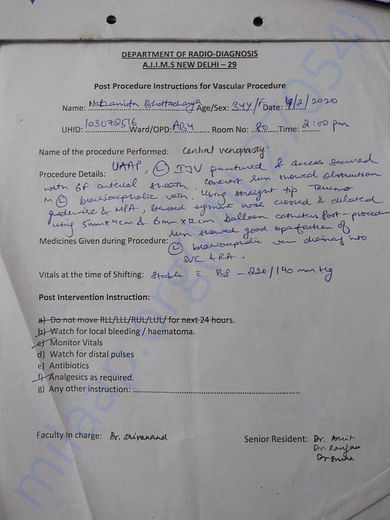 DEPARTMENT OF RADIO-DIAGNOSIS
A.I.I.M.S NEW DELHI – 29
Post Procedure Instructions for Vascular Procedure
Name: Nabamita Bhattacharya Age/Sex: 34Y/F Date: 4/2/2020
UHID: 103072516 Ward/OPD: AB4 Room No: Time: 2:00 pm
Name of the procedure Performed: Central venoplasty.
Procedure Details: UAAP, (L) IJV punctured & access secured
with 6F arterial sheath. Contrast run showed obstruction
in (L) brachiocephalic vein. Using straight tip Terumo
guidewire & MPA, stenosed segment was crossed & dilated
using 5mm x 4cm & 6mm x 12cm balloon catheters. Post-procedure
run showed good opacification of
Medicines Given during Procedure: (L) brachiocephalic vein draining into
SVC & RA.
Vitals at the time of Shifting: Stable c BP - 220/140 mm Hg
Post Intervention Instruction:
a) Do not move RLL/LLL/RUL/LUL/ for next 24 hours.
b) Watch for local bleeding / haematoma.
c) Monitor Vitals
d) Watch for distal pulses
e) Antibiotics
f) Analgesics as required.
g) Any other instruction:
Faculty In charge: Dr. Shivanand Senior Resident: Dr. Amit
Dr. Ranjan
milaap.org